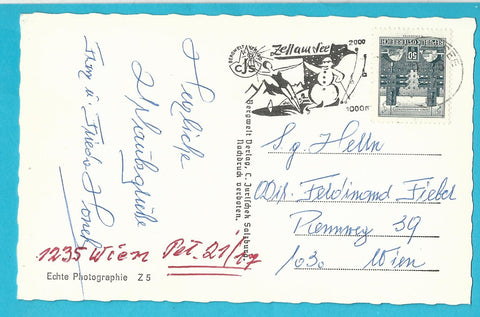 Herzliche
Urlaubsgrüße
Fam. u. Frieda
1235 Wien Pet. 21/
Echte Photographie Z 5
Bergwelt Verlag, C. Jurischek Salzburg.
Nachdruck verboten.
Zell am See
2000
1000
REPUBLIK ÖSTERREICH
50
S.g. Herrn
Ferdinand Fiebel
Rennweg 39
1030 Wien